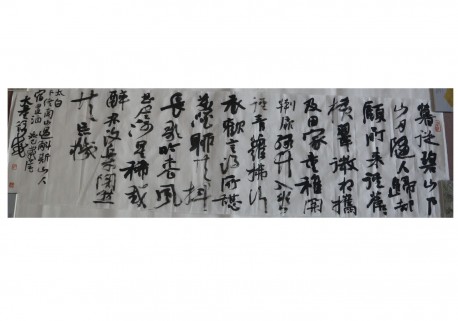 暮從碧山下
山月隨人歸却
顧所來徑蒼
橫翠微相攜
及田家童稚開
荆扉緑竹入幽
徑青蘿拂行
衣歡言得所憩
美酒聊共揮
長歌吟松風
曲盡河星稀我
醉君復樂陶然
共忘機
太白
下終南山過斛斯山人
宿置酒